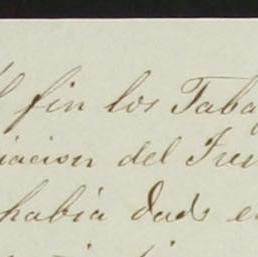 fin los Taba
iacion del Fre
habia dado e